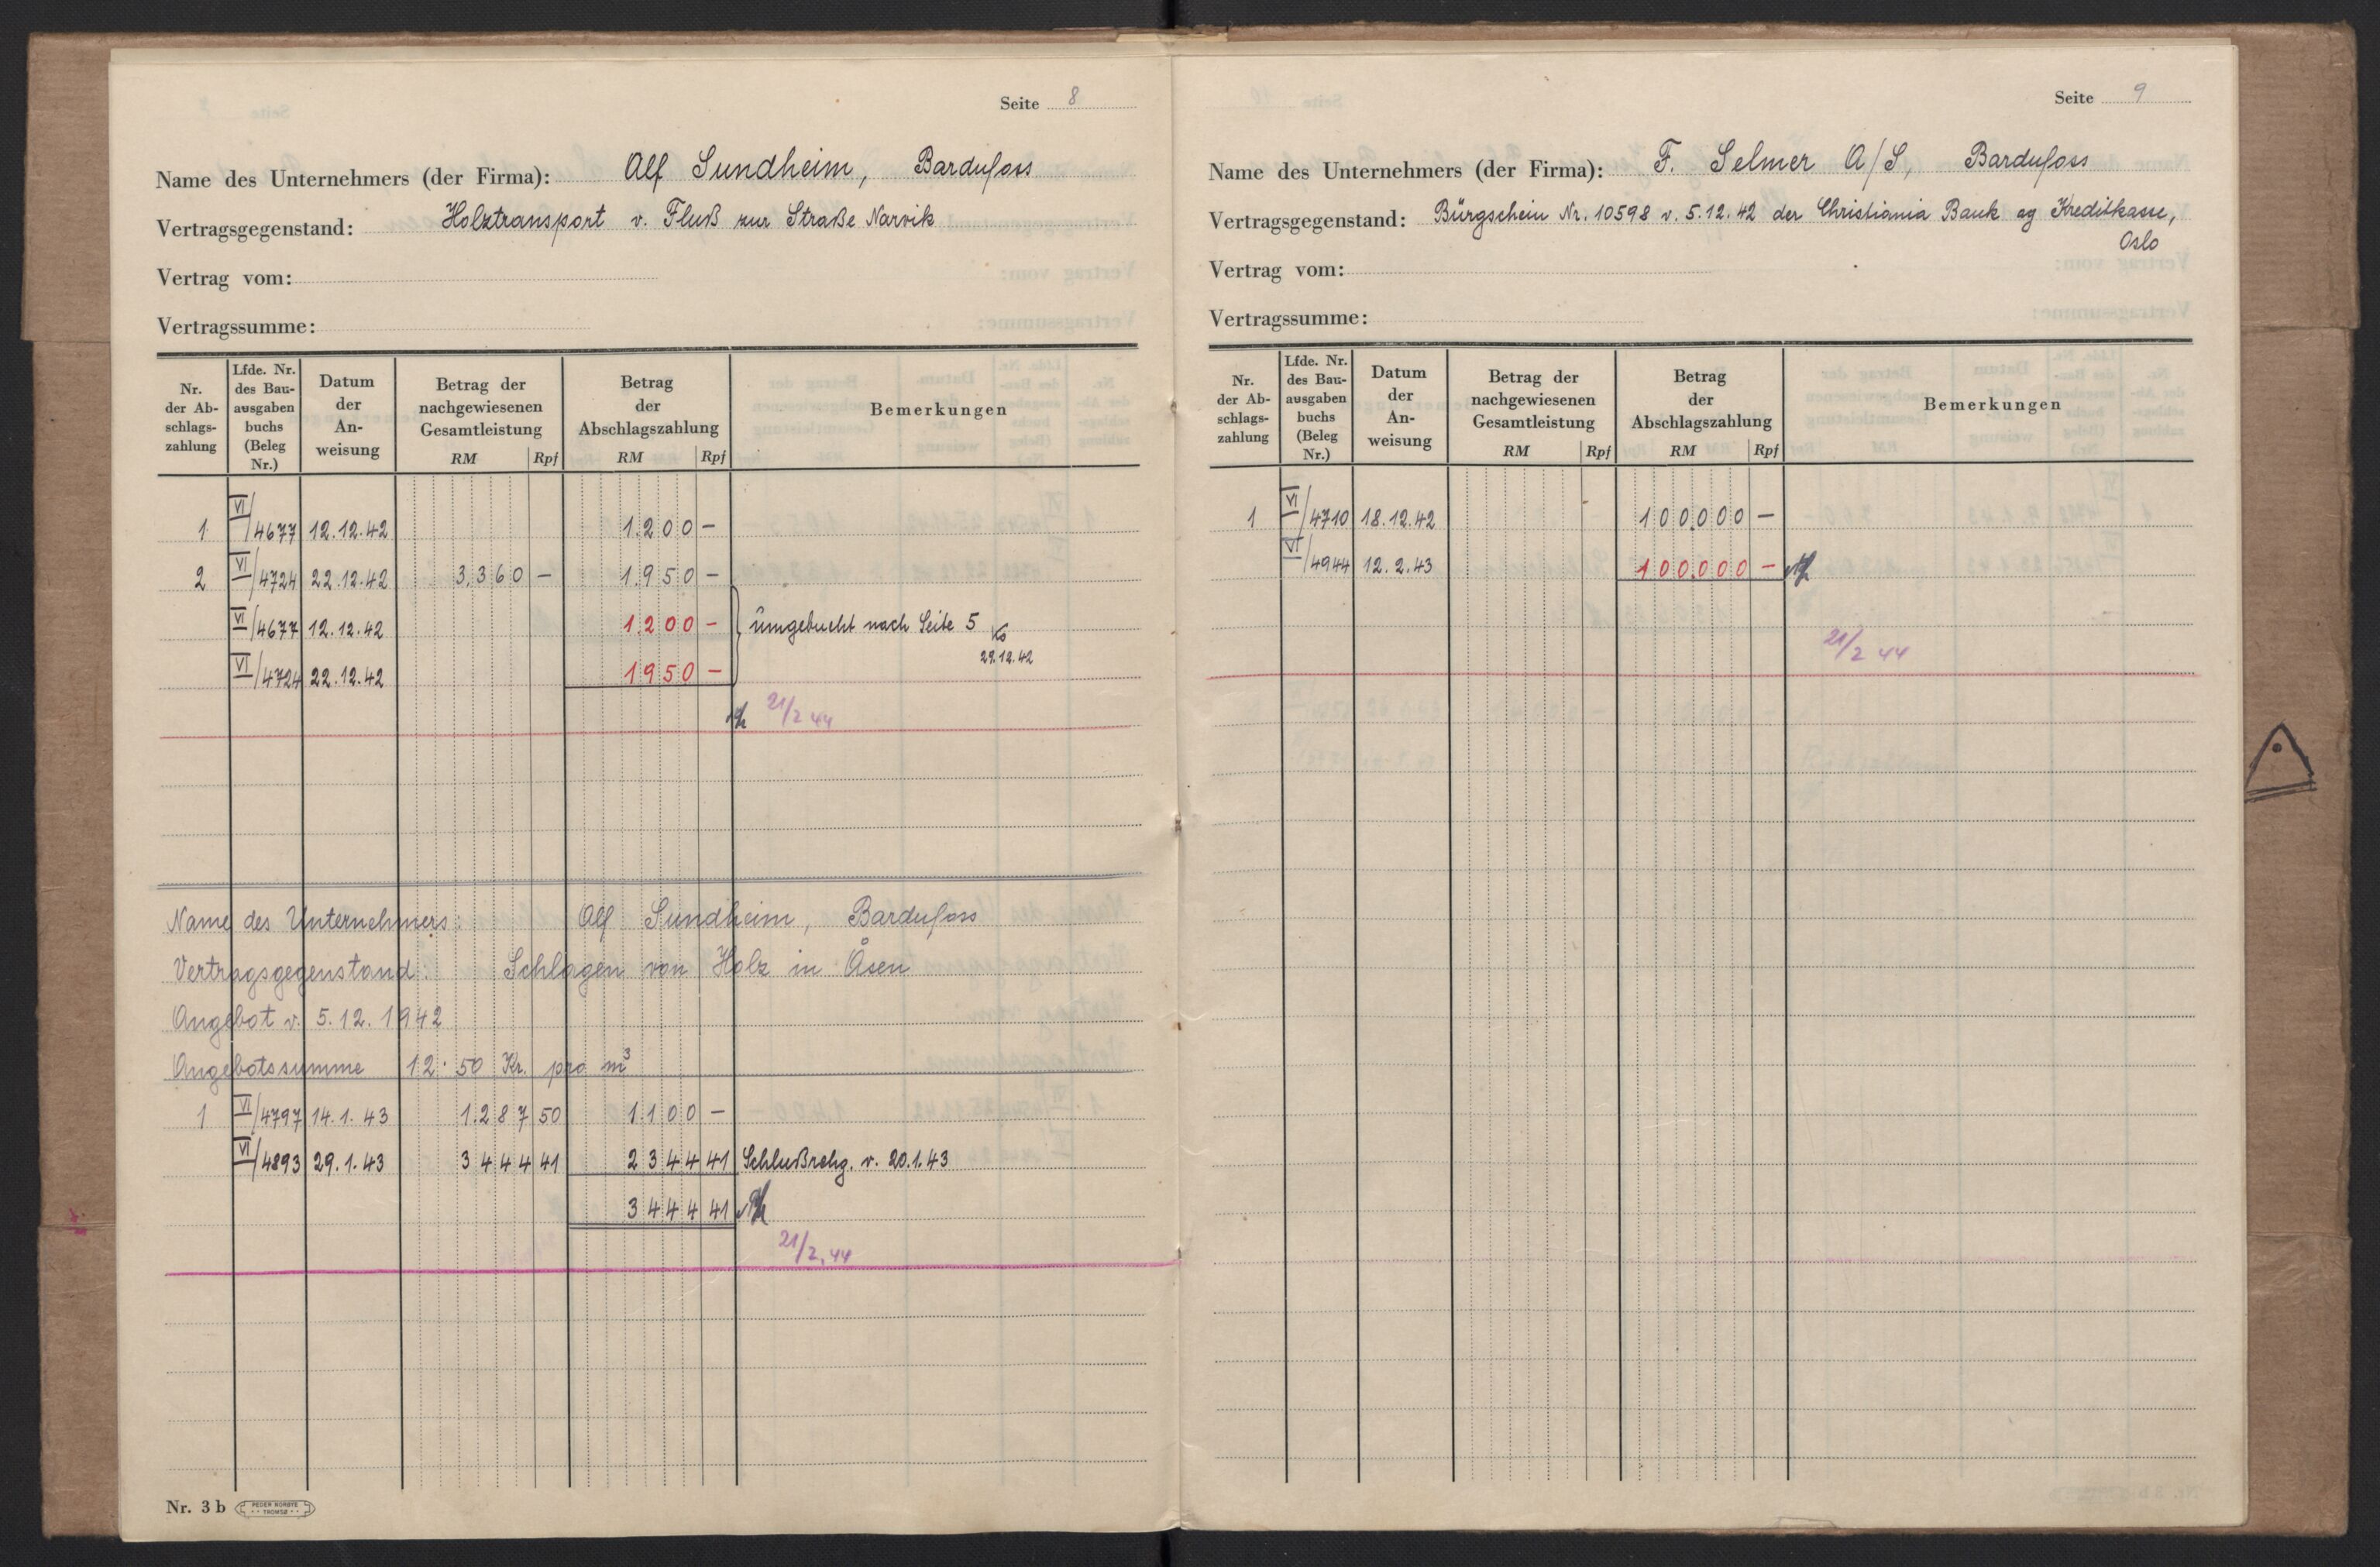 Seite 8
Name des Unternehmers (der Firma): Alf Sundheim, Bardufoss
Vertragsgegenstand: Holztransport v. Fluß zur Straße Narvik
Vertrag vom:
Vertragssumme:
Nr. der Ab-schlags-zahlung | Lfde. Nr. des Bau-ausgaben buchs (Beleg Nr.) | Datum der An-weisung | Betrag der nachgewiesenen Gesamtleistung RM Rpf | Betrag der Abschlagszahlung RM Rpf | Bemerkungen
1 VI/4677 12.12.42 1.200 –
2 VI/4724 22.12.42 3.360 – 1.950 –
VI/4677 12.12.42 1.200 – umgebucht nach Seite 5
VI/4724 22.12.42 1950 – 29.12.42
21/2 44
Name des Unternehmers: Alf Sundheim, Bardufoss
Vertragsgegenstand: Schlagen von Holz in Åsen
Angebot v. 5.12.1942
Angebotssumme 12.50 Kr. pro m³
1 VI/4797 14.1.43 1.287 50 1.100 –
VI/4893 29.1.43 3444 41 2344 41 Schlußrchg. v. 20.1.43
3444 41
21/2.44
Nr. 3 b PEDER NORBYE TROMSØ
Seite 9
Name des Unternehmers (der Firma): F. Selmer A/S, Bardufoss
Vertragsgegenstand: Bürgschein Nr. 10598 v. 5.12.42 der Christiania Bank og Kreditkasse,
Oslo
Vertrag vom:
Vertragssumme:
Nr. der Ab-schlags-zahlung | Lfde. Nr. des Bau-ausgaben buchs (Beleg Nr.) | Datum der An-weisung | Betrag der nachgewiesenen Gesamtleistung RM Rpf | Betrag der Abschlagszahlung RM Rpf | Bemerkungen
1 VI/4710 18.12.42 100.000 –
VI/4944 12.2.43 100.000 –
21/2 44